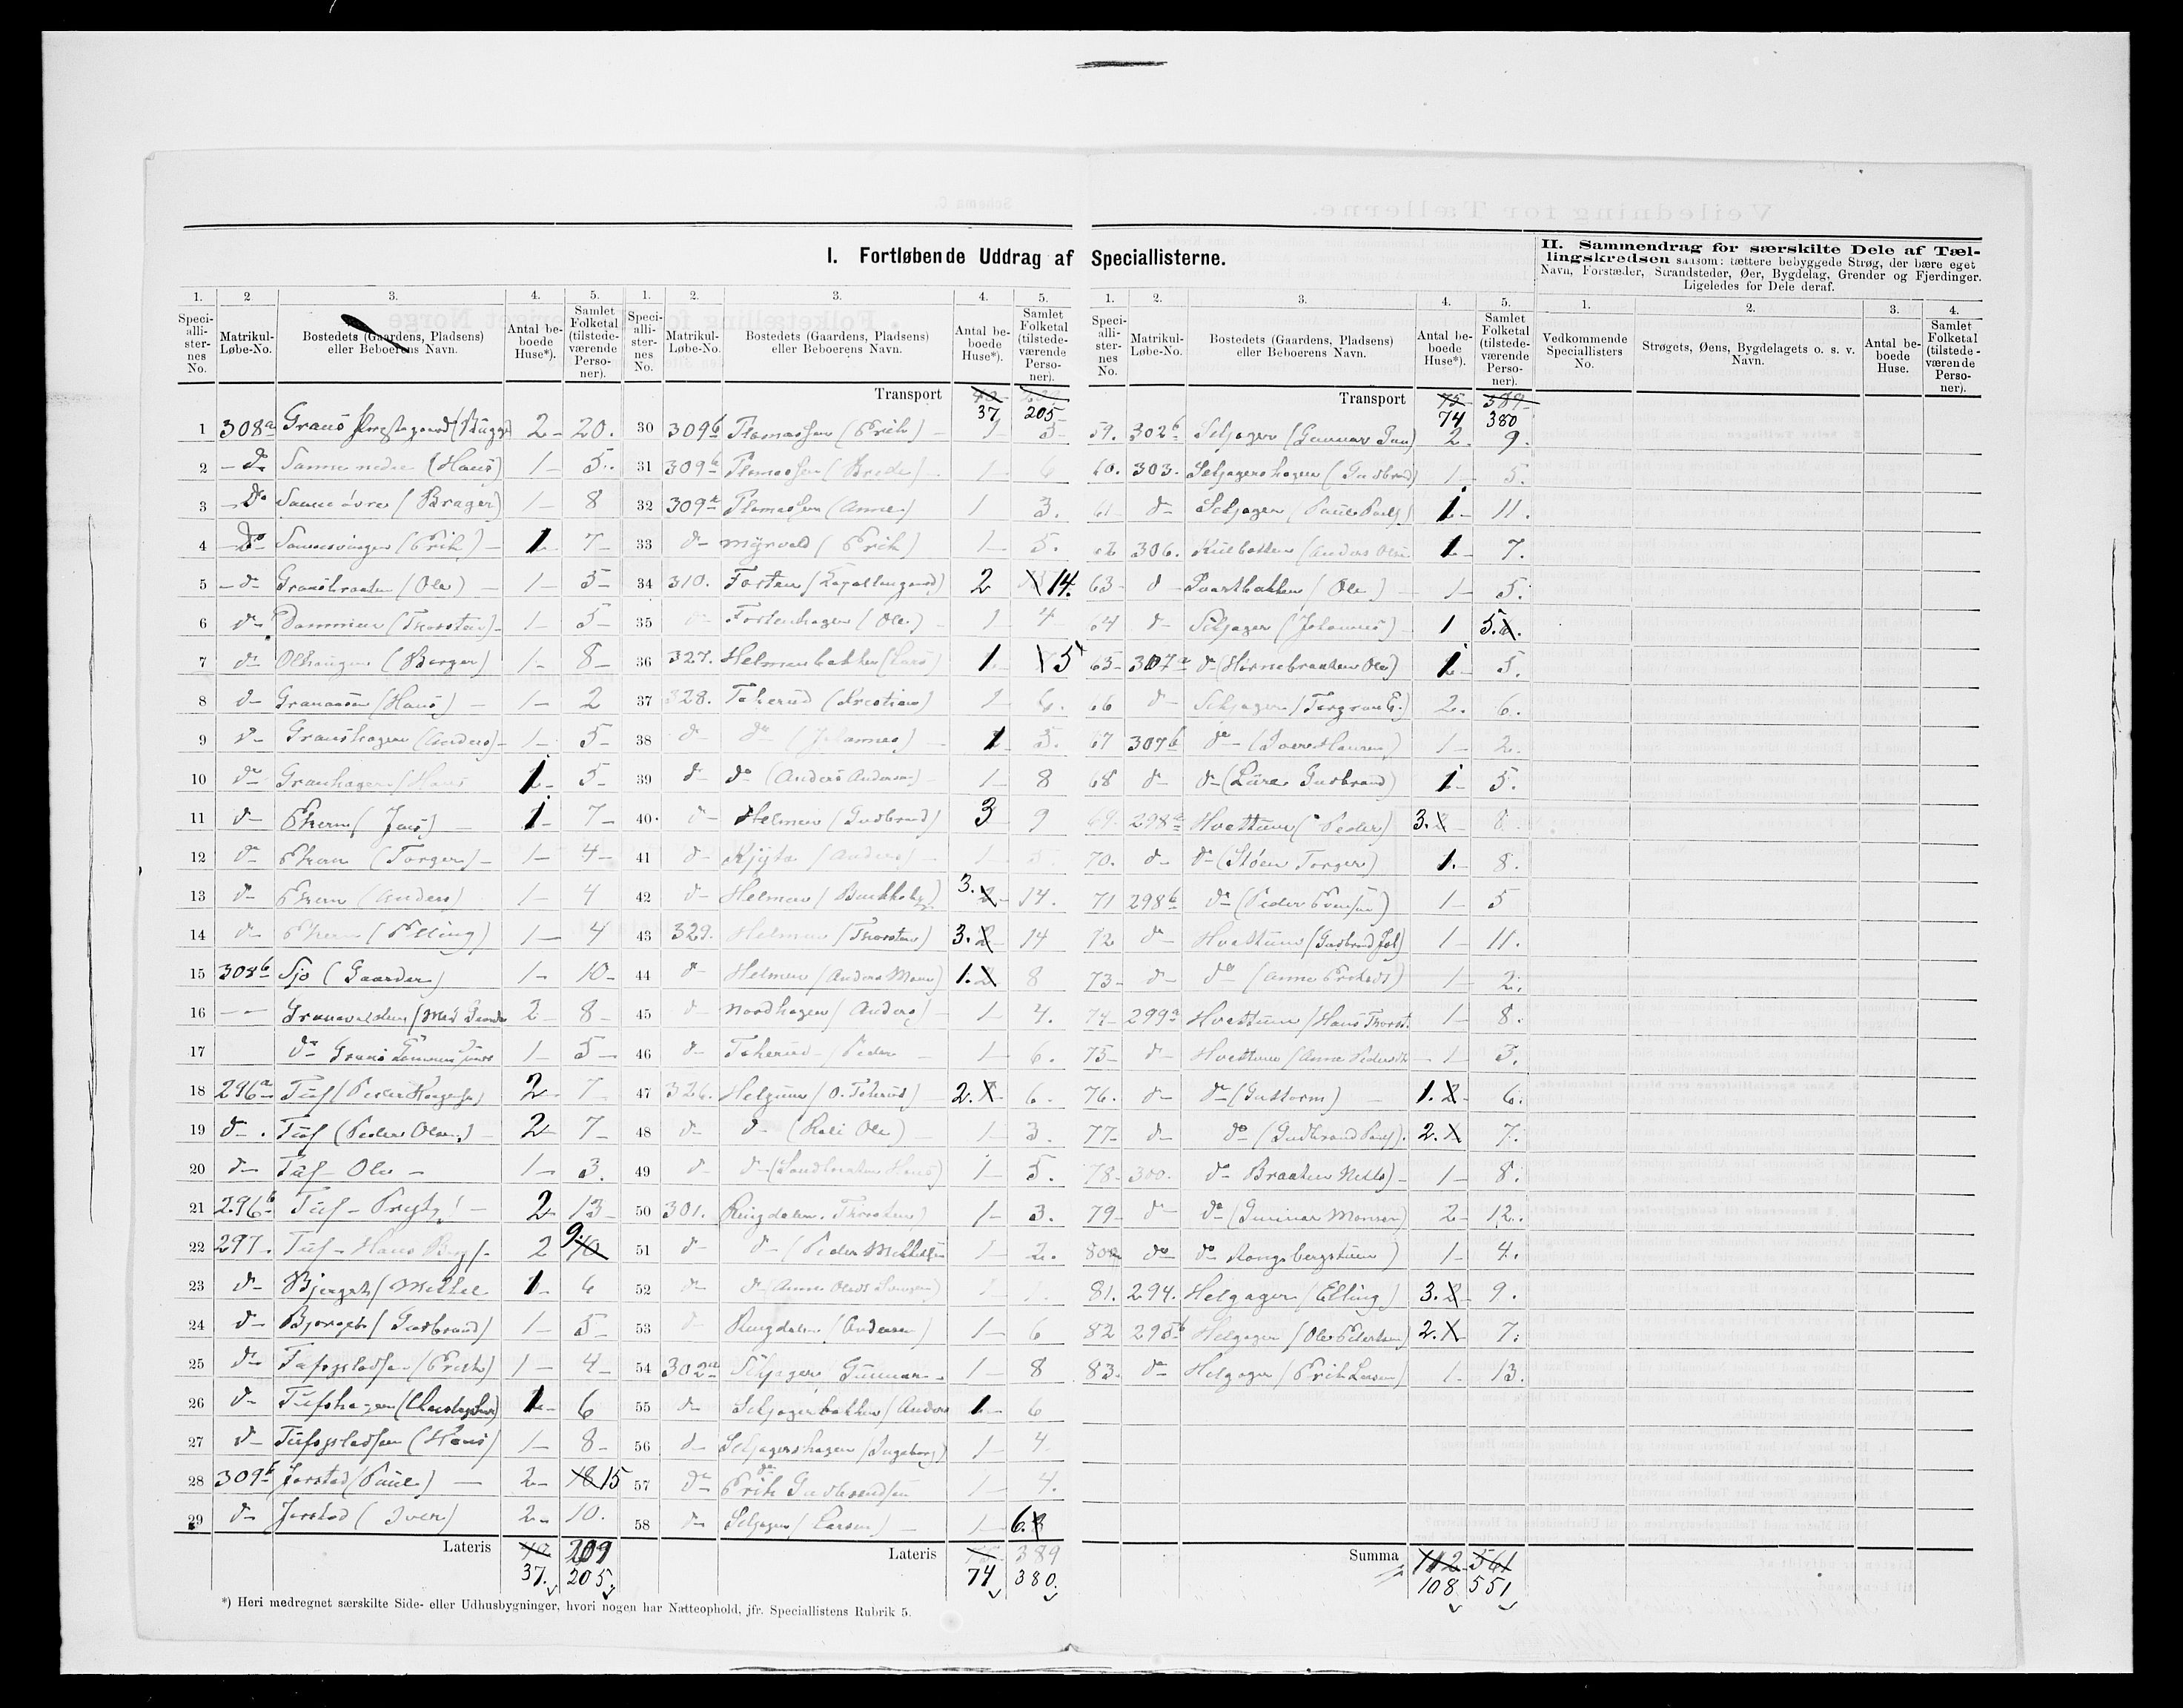 I. Fortløbende Uddrag af Speciallisterne.
II. Sammendrag for særskilte Dele af Tællingskredsen saasom: tættere bebyggede Strøg, der bære eget
Navn, Forstæder, Strandsteder, Øer, Bygdelag, Grender og Fjerdinger.
Ligeledes for Dele deraf.
1. 2 3. 4. 5.
Speciallisternes No. Matrikul-Løbe-No. Bostedets (Gaardens, Pladsens) eller Beboerens Navn. Antal beboede Huse*). Samlet Folketal (tilstedeværende Personer).
1 308a Grans Prestegaard 2 20.
2 do Sanne nedre (Hans) 1 5.
3 do Sanne øvre (Brager) 1 8
4 do Sannesvingen (Erik) 1 7
5 do Gransbraaten (Ole) 1 5
6 do Dammen (Thorsten) 1 5
7 do (Børger) 1 8
8 do Granaasen (Hans) 1 2
9 do Granshagen (Anders) 1 5
10 do Granhagen (Hans 1 5
11 do Ekern (Jens) 1 7
12 do Ekern (Torger) 1 4
13 do Ekern (Anders) 1 4
14 do Ekern (Elling) 1 4
15 308b Sjo (Gaarder) 1 10
16 Granavolden 2 8
17 do Grans 1 5
18 296a Tuf (Peder 2 7
19 do Tuf (Peder Olsen) 2 7
20 do Tuf Ole 1 3.
21 296b Tuf 2 13
22 297. Tuf Hans 2 9. 10
23 do Bjerget (Mikkel 1 6
24 do Bjerget (Gudbrand) 1 5
25 do (Erik) 1 4
26 do Tufshagen 1 6
27 do (Hans) 1 8
28 309b Jorstad (Paul) 2 18 15
29 do Jorstad (Iver) 2 10.
Lateris 40 209
37. 205.
Transport
37 205
30 309b Thomassen (Erik) 1 5
31 309b Thomassen (Brede) 1 6
32 309a Thomassen (Anne) 1 3.
33 do Myrvold (Erik) 1 5.
34 310. Forten 2 14.
35 do Fortenhagen (Ole) 1 4
36 327. Helmenbakken (Lars) 1 5
37 328. Tokerud (Kristian) 1 6.
38 do do (Johannes) 1 5.
39 do do (Anders Andersen) 1 8
40 do Helmen (Gudbrand) 3 9
41 do (Anders) 1 5
42 do Helmen 3. 2 14.
43 329. Helmen (Thorsten) 3. 2 14
44 do Helmen (Anders 1. 2 8
45 do Nordhagen (Anders) 1 4.
46 do Tokerud Peder 1 6.
47 326. Helgum (O. Tokerud) 2. 1 6.
48 do do (Ole) 1 3.
49 do do (Hans) 1 5.
50 301. Ringdalen Thorsten) 1 3.
51 do do (Peder Mikkelsen 1 2.
52 do do (Anne 1 1
53 do Ringdalen (Andersen) 1 6
54 302a Seljager Gunnar 1 8
55 do Seljagerbakken (Anders 1 6
56 do Seljagershagen (Ingeborg) 1 4.
57 do do Erik Gudbrandsen 1 4.
58 do Seljager (Larsen) 1 6. 8
Lateris 75 389
74 380.
Transport 75 389
74 380
59. 302b Seljager (Gunnar 2. 9.
60. 303. Seljagershagen (Gudbrand) 1 5.
61 do Seljager (Paul 1 11.
62 306. (Anders Olsen 1 7.
63 do (Ole) 1 5.
64 do Seljager (Johannes) 1 5.
65 307a do (Hornebraaten Ole) 1 5.
66 do Seljager 2. 6.
67 307b do (Iver Hansen) 1 2.
68 do do (Lure Gudbrand) 1 5.
69. 298a Hvattum (Peder) 3. 8.
70. do do (Støen Torger) 1. 8.
71 298b do (Peder 1 5
72 do Hvattum (Gudbrand 1 11.
73 do do (Anne 1 2.
74 299a Hvattum (Hans Thorst. 1 8.
75 do Hvattum (Anne Pedersdtr 1 3.
76. do do (Guttorm) 1. 2 6.
77 do do (Gudbrand 2. 1 7.
78 300. do Braaten Nils) 1 8.
79 do do (Gunnar Monsen) 2 12.
80 do do Kongsbergstuen) 1 4.
81. 294. Helgager (Elling) 3. 2 9.
82 295b Helgager (Ole Pedersen) 2. 1 7.
83. do Helgager (Erik Larsen) 1. 13.
Summa 112 561
108 551
1. 2. 3. 4.
Vedkommende Speciallisters No. Strøgets, Øens, Bygdelagets o. s. v. Navn. Antal beboede Huse. Samlet Folketal (tilstedeværende Personer).
*) Heri medregnet særskilte Side- eller Udhusbygninger, hvori nogen har Natteophold, jfr. Speciallistens Rubrik 5.